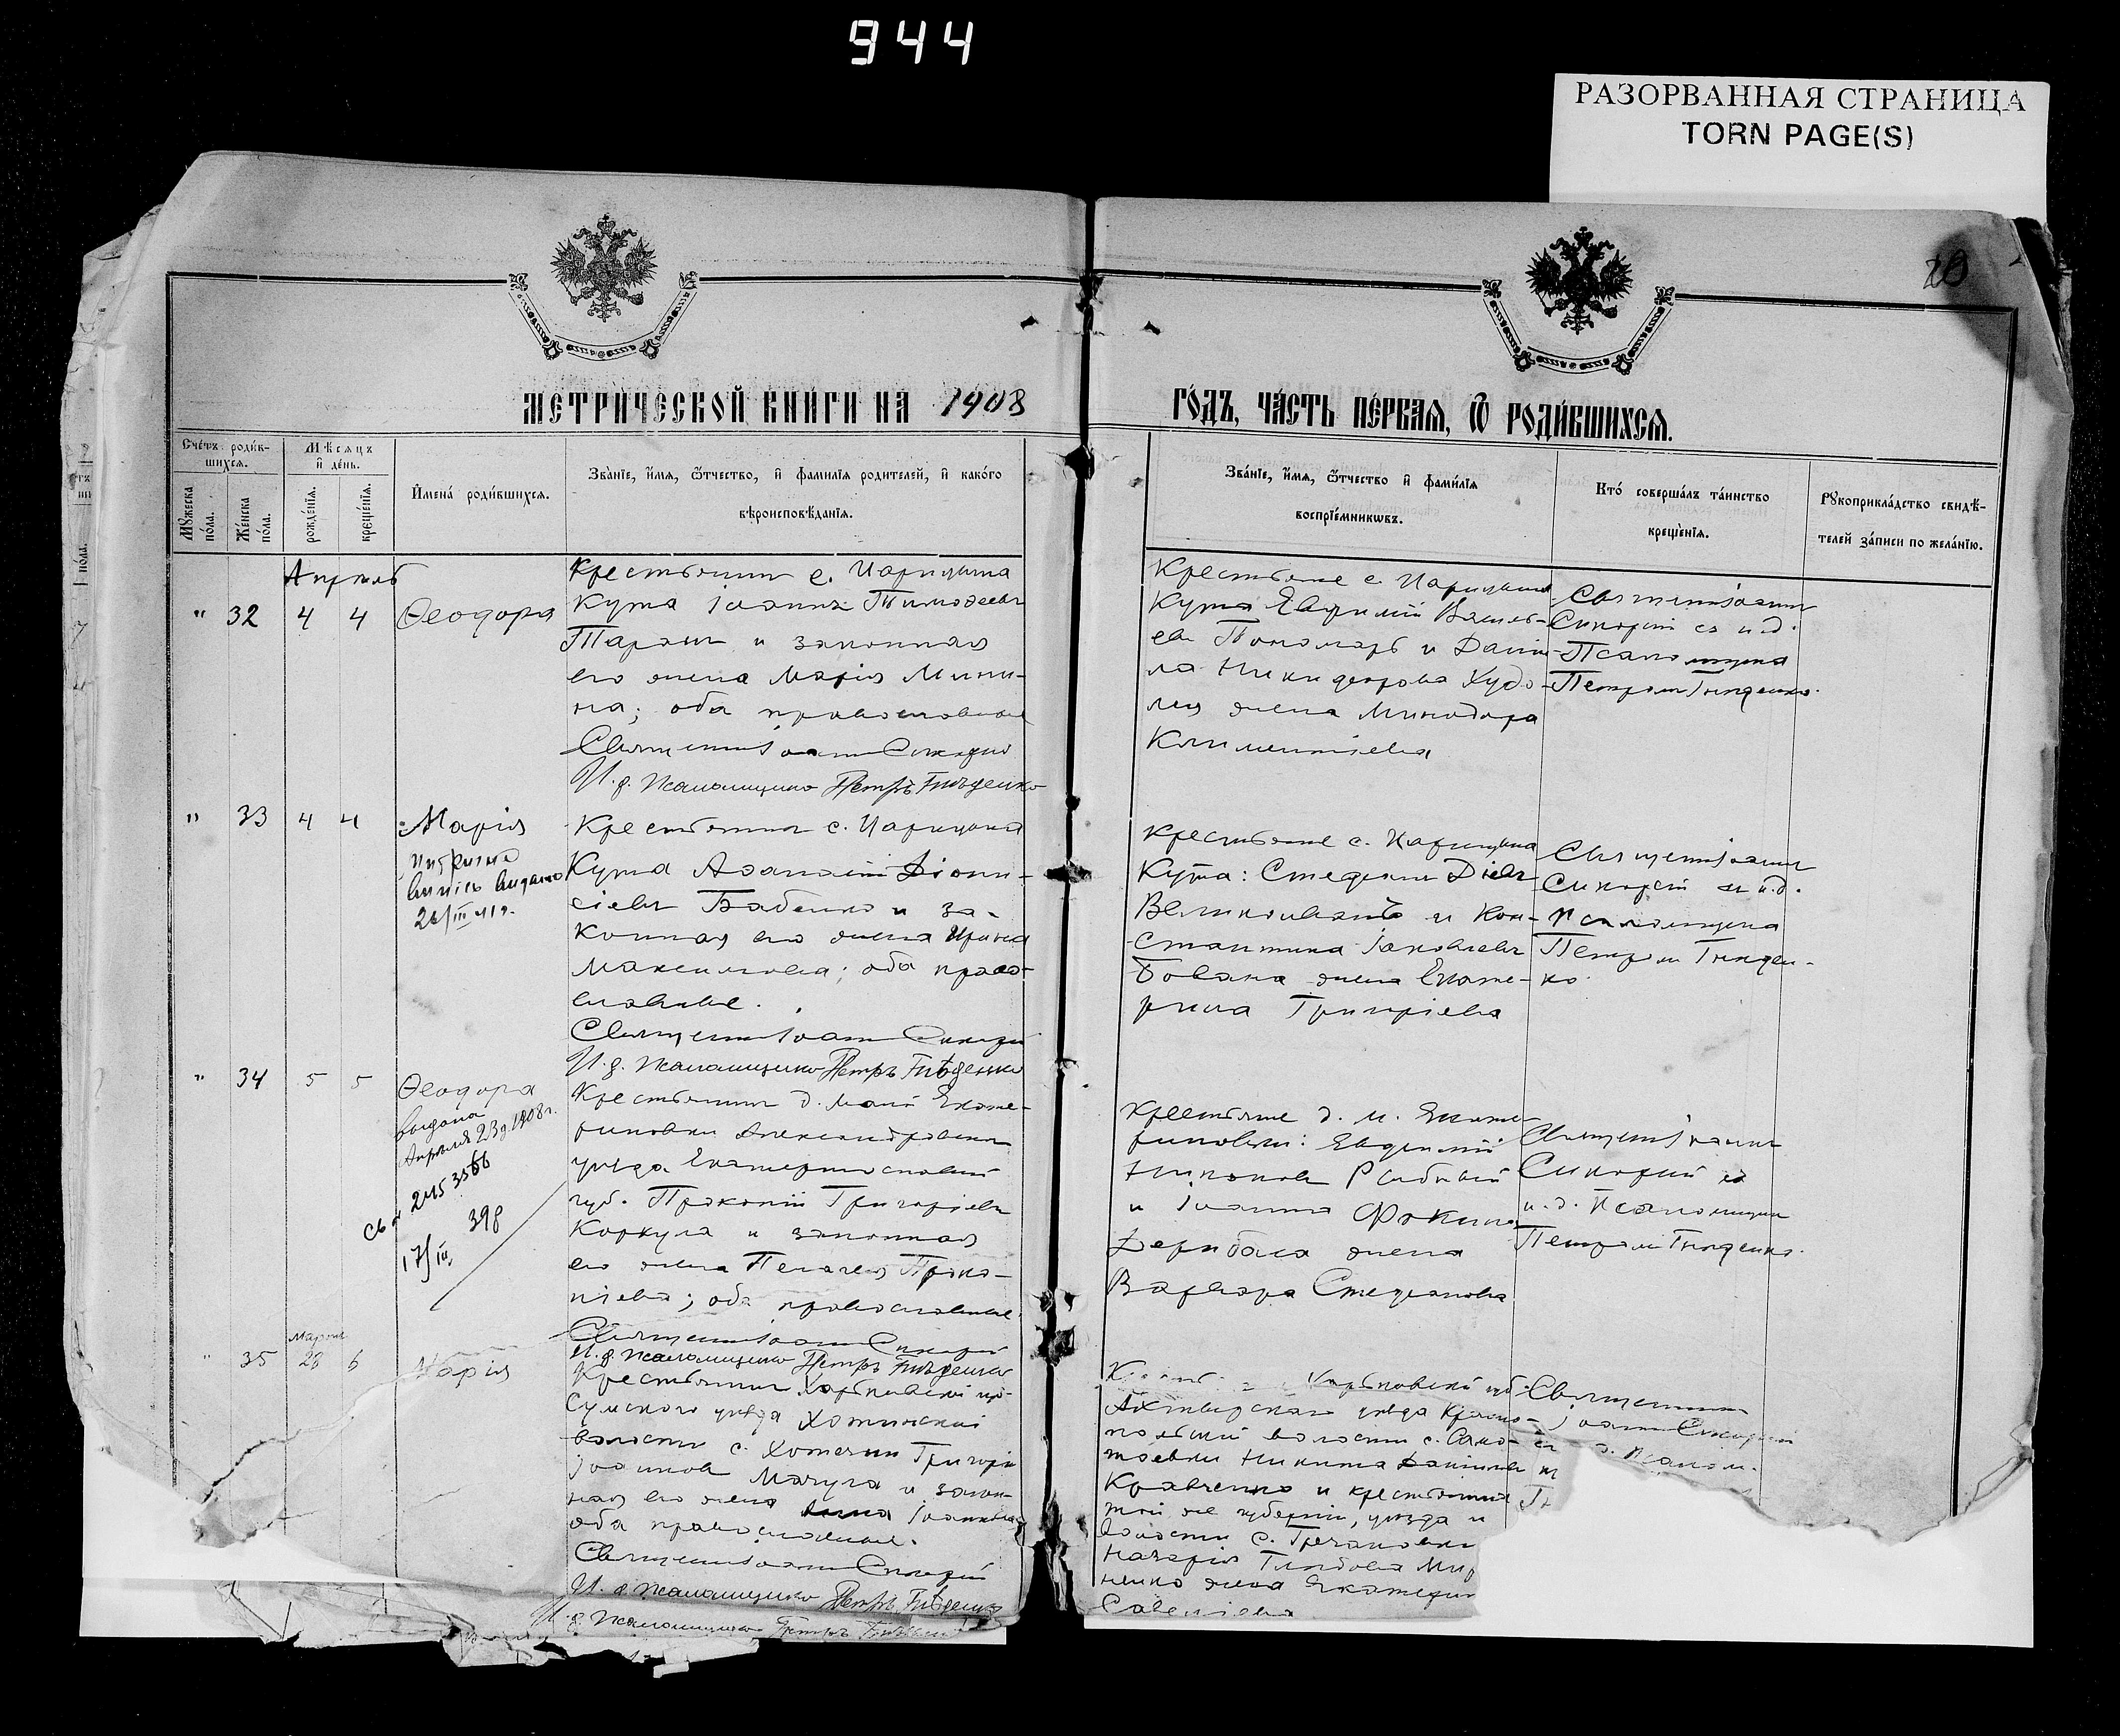 944
РАЗОРВАННАЯ СТРАНИЦА
TORN PAGE(S)
20
МЕТРИЧЕСКОЙ КНИГИ НА 1908
ГОДЪ, ЧАСТЬ ПЕРВАЯ, Ѿ РОДИВШИХСЯ.
Счетъ родив-
шихся.
Мужеска
пола.
Женска
пола.
Мѣсяцъ
и день.
рожденія.
крещенія.
Имена родившихся.
Званіе, имя, ѿтчество, и фамилія родителей, и какого
вѣроисповѣданія.
Званіе, имя, ѿтчество и фамилія
воспріемниковъ.
Кто совершалъ таинство
крещенія.
Рукоприкладство свидѣ-
телей записи по желанію.
Апрель
" 32 4 4 Ѳеодора
Крестьянин с. Царицына
Кута Іоаннъ Тимоѳеевъ
Таран и законная
его жена Марія Мини-
на; оба православные
Священ Іоанн Сикорскій
И. д. Псаломщика Петръ Гнѣденко
Крестьяне с. Царицына
Кута Евфимій Василь-
ев Пономарь и Дании-
ла Никифорова Худо-
лея жена Минодора
Климентіева
Священ Іоанн
Сикорскій с и. д.
Псаломщика
Петром Гнѣденко.
" 33 4 4 Марія
Крестьянин с. Царицына
Кута Аѳанасій Діони-
сіевъ Бабенко и за-
конная его жена Ирина
Максимова; оба право-
славные.
Священ Іоанн Сикорскій
И. д. Псаломщика Петръ Гнѣденко
Крестьяне с. Царицына
Кута: Стефанъ Діевъ
Великоиваненъ и Кон-
стантина Іаковлева
Бована жена Екате-
рина Григоріева
Священ Іоанн
Сикорскій и и.д.
Псаломщика
Петром Гнѣден-
ко.
" 34 5 5 Ѳеодора
выдана
Апреля 23 д 1908 г.
2 45 3566
398
17/III
Крестьянин д. Малой Екате-
риновки Александровска
уѣзда Екатеринославской
губ. Прокопій Григоріевъ
Коркула и законная
его жена Пелагея Проко-
піева; оба православные.
Священ Іоанн Сикорскій
И. д. Псаломщика Петръ Гнѣденко
Крестьяне д. М. Екате-
риновки: Евфимій
Никонов Рябый
и Іоанна Фокина
Дерибаса жена
Варвара Стефанова
Священ Іоанн
Сикорскій и
и. д. Псаломщика
Петром Гнѣденко.
Марта
" 35 28 6 Марія
Крестьянин Харьковской губ
Сумского уѣзда Хотинской
волости с. Хотени Григорій
Іоакимов Мачула и закон-
ная его жена Анна Іоаннова
оба православные.
Священ Іоанн Сикорскій
И. д. Псаломщика Петръ Гнѣденко
И. д. Псаломщика Петръ Гнѣденко
Харьковской губ.
Ахтырскаго уѣзда Красно-
польской волости с. Само-
тоевки Никита Даніилов
Кравченко и крестьянина
той же губерніи, уѣзда и
волости с. Гречановки
Назарія Глебова Мир
ненко жена Екатерин
Савеліева
Священник
Іоанн Сикорскій
д. Псалом.